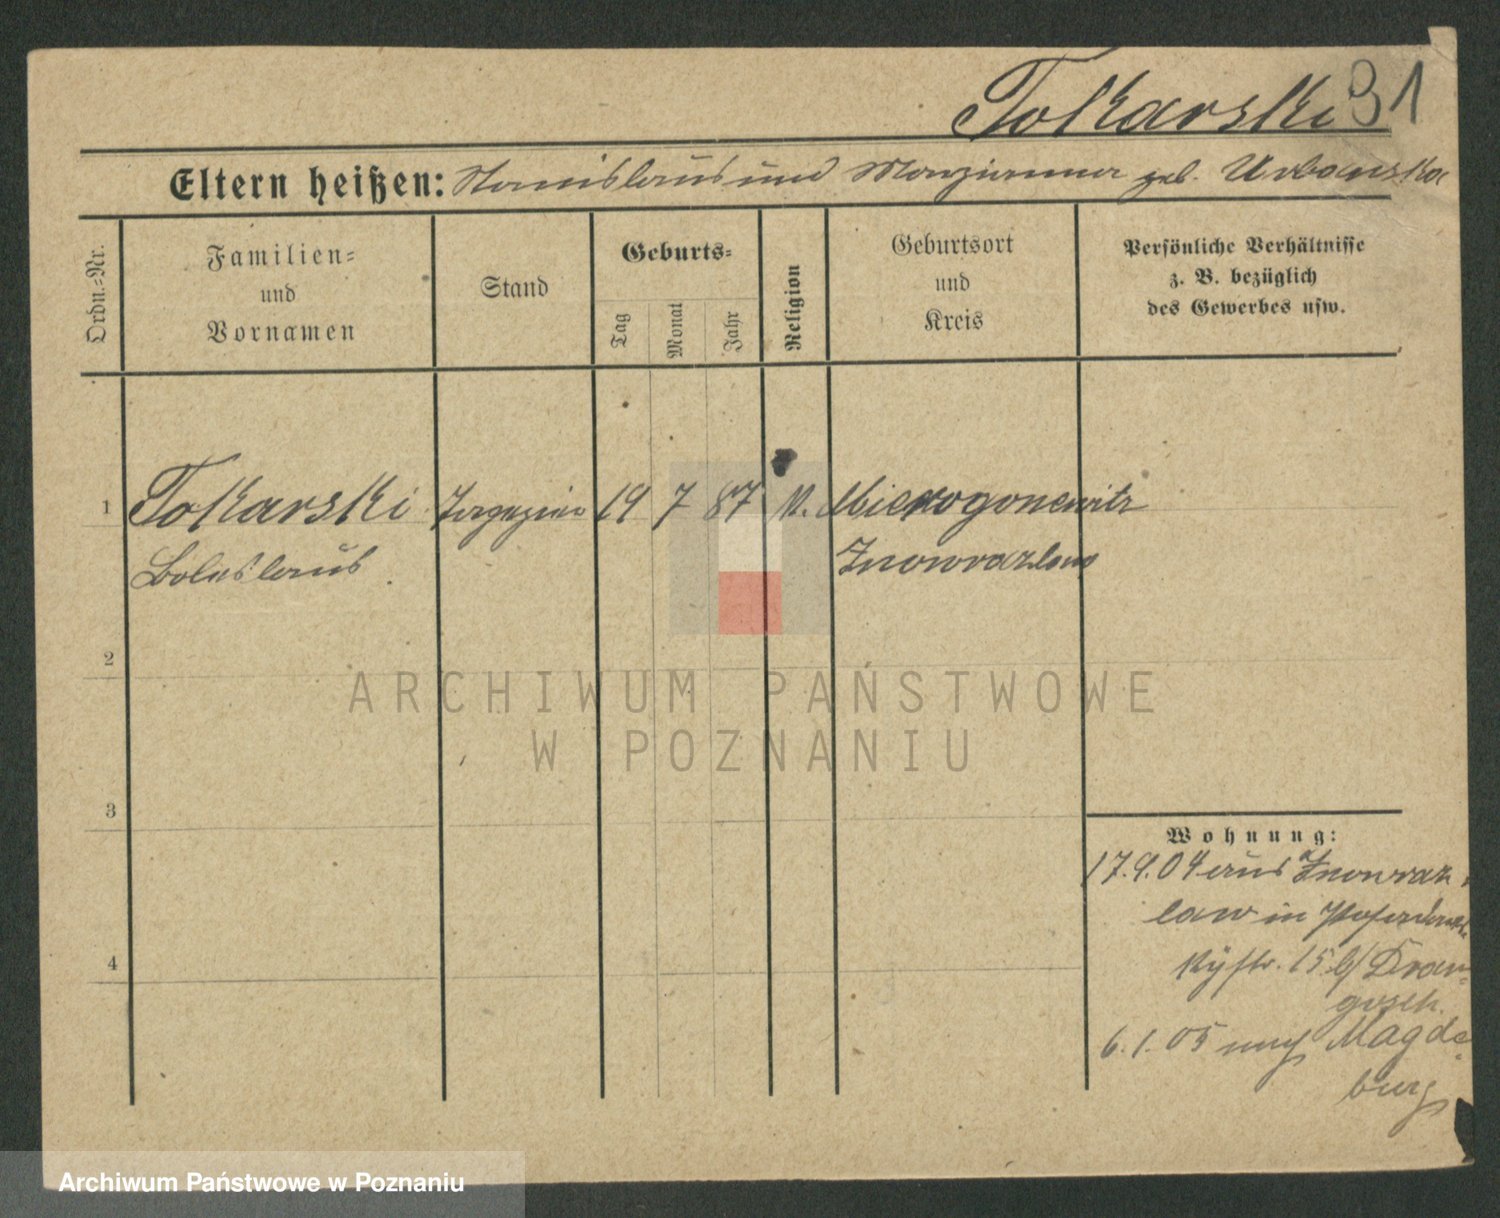 Tokarski 31
Eltern heißen: Stanislaus und Marzianna geb. Urbanska
Ordn.-Nr.
Familien- und Vornamen
Stand
Geburts-
Tag
Monat
Jahr
Religion
Geburtsort und Kreis
Persönliche Verhältnisse
z. B. bezüglich
des Gewerbes usw.
1 Tokarski 19 7 87 K.
Boleslaus Inowrazlaw
2
ARCHIWUM PAŃSTWOWE
W POZNANIU
3
4
Wohnung:
17.9.04 aus Inowraz
law in
str. 15 b/
6.1.05 nach Magde
burg
Archiwum Państwowe w Poznaniu